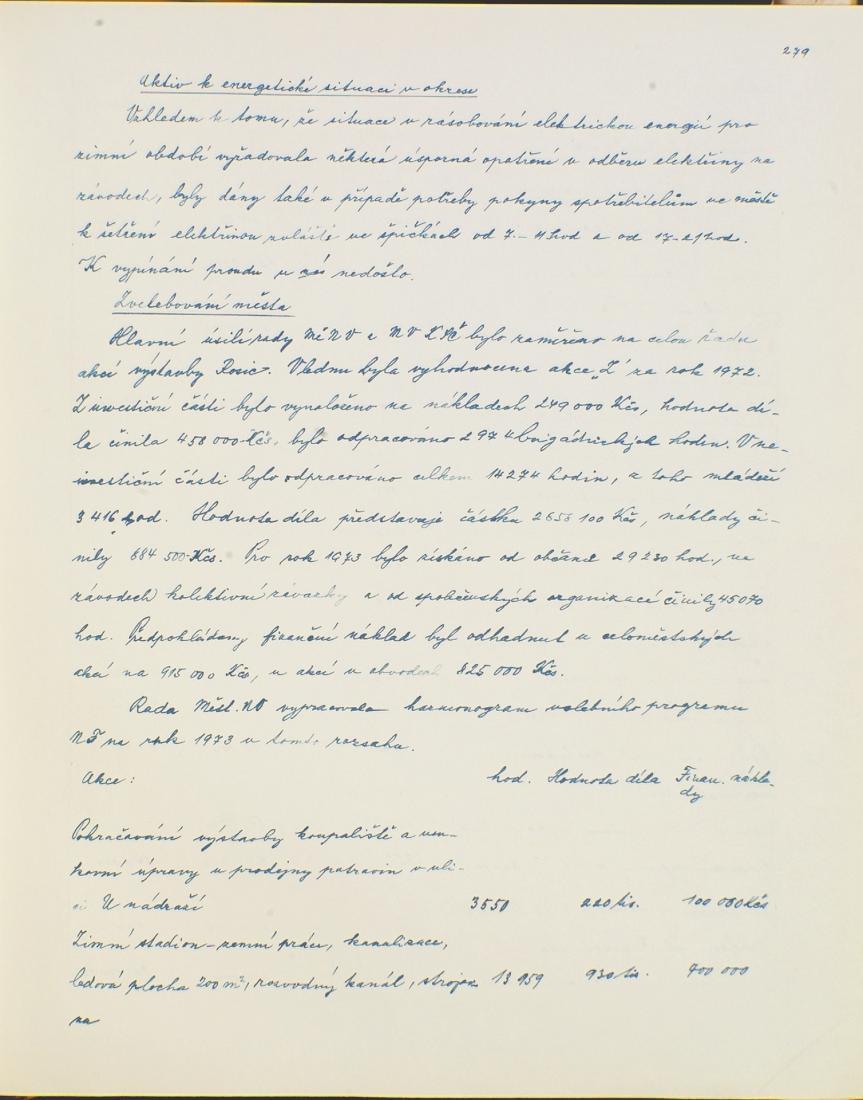 279
Aktiv k energetické situaci v okrese
Vzhledem k tomu, že situace v zásobování elektrickou energií pro
zimní období vyžadovala některá úsporná opatření v odběru elektřiny na
závodech, byly dány také v případě potřeby pokyny spotřebitelům ve městě
k šetření elektřinou zvláště ve špičkách od 7.–11 hod a od 17–21 hod.
K vypínání proudu u nás nedošlo.
Zvelebování města
Hlavní úsilí rady MěNV a MV KSČ bylo zaměřeno na celou řadu
akcí výstavby Rosic. V lednu byla vyhodnocena akce „Z" za rok 1972.
Z investiční části bylo vynaloženo na nákladech 249 000 Kčs, hodnota dí-
la činila 450 000 Kčs, bylo odpracováno 2 974 brigádnických hodin. V ne-
investiční části bylo odpracováno celkem 14 274 hodin, z toho mládeží
3 416 hod. Hodnota díla představuje částku 2 658 100 Kčs, náklady či-
nily 884 500 Kčs. Pro rok 1973 bylo získáno od občanů 29 230 hod., na
závodech kolektivní závazky a od společenských organizací činily 45 070
hod. Předpokládaný finanční náklad byl odhadnut u celoměstských
akcí na 915 000 Kčs, u akcí v obvodech 825 000 Kčs.
Rada Měst. NV vypracovala harmonogram volebního programu
NF na rok 1973 v tomto rozsahu.
Akce: hod. Hodnota díla Finan. nákla-
dy
Pokračování výstavby koupaliště a ven-
kovní úpravy u prodejny potravin v uli-
ci U nádraží 3550 220 tis. 100 000 Kčs
Zimní stadion – zemní práce, kanalizace,
ledová plocha 200 m², rozvodný kanál, strojov 13 959 930 tis. 700 000
na